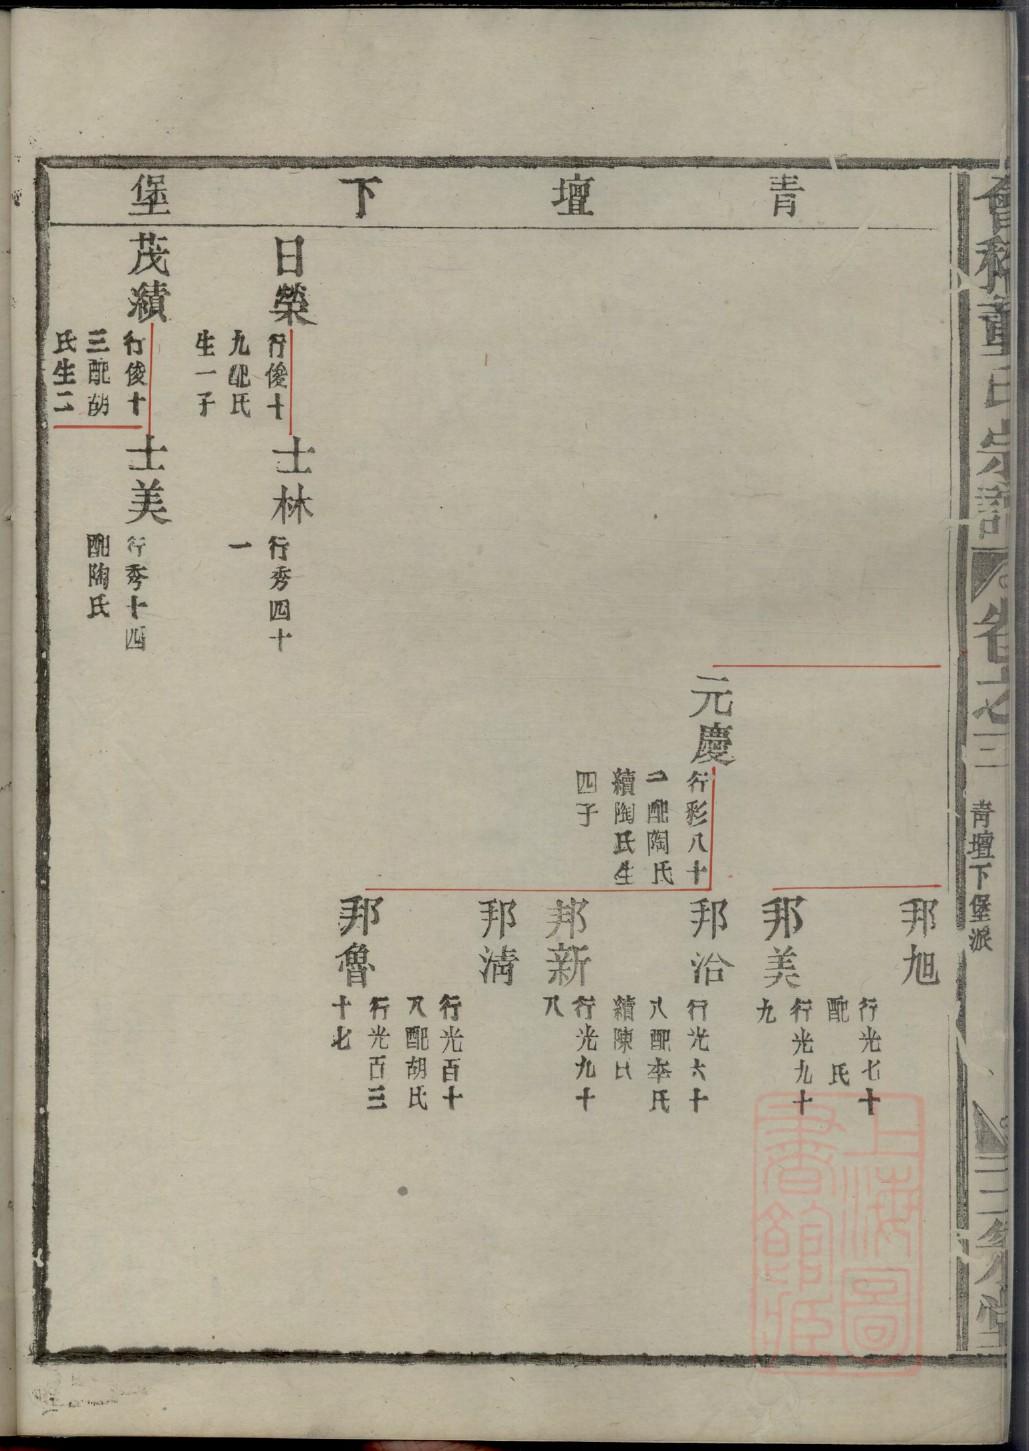 會稽董氏宗譜
卷之三
青壇下堡派
三策堂
青壇下堡
邦旭
行光七十
配　氏
邦美
行光九十
九
元慶
行彩八十
二配陶氏
續陶氏生
四子
邦治
行光六十
八配李氏
續陳氏
邦新
行光九十
八
邦清
行光百十
八配胡氏
邦魯
行光百三
十七
日榮
行俊十
九配氏
生一子
士林
行秀四十
一
茂績
行俊十
三配胡
氏生二
士美
行秀十四
配陶氏
上海圖
書館藏